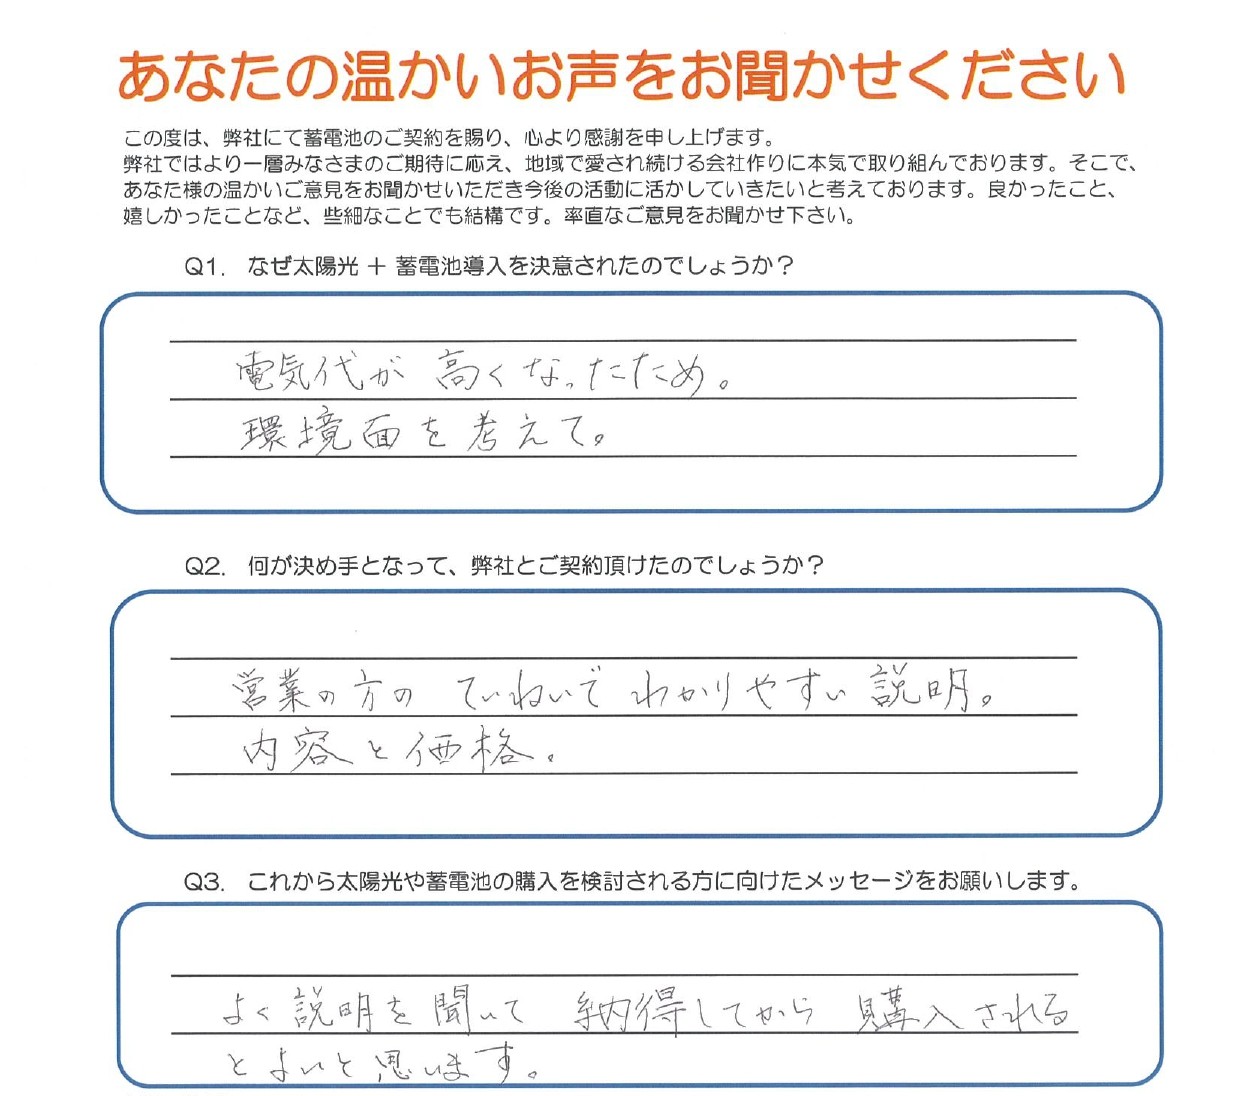 あなたの温かいお声をお聞かせください
この度は、弊社にて蓄電池のご契約を賜り、心より感謝を申し上げます。
弊社ではより一層みなさまのご期待に応え、地域で愛され続ける会社作りに本気で取り組んでおります。そこで、
あなた様の温かいご意見をお聞かせいただき今後の活動に活かしていきたいと考えております。良かったこと、
嬉しかったことなど、些細なことでも結構です。率直なご意見をお聞かせ下さい。
Q1. なぜ太陽光 + 蓄電池導入を決意されたのでしょうか？
電気代が 高くなったため。
環境面を考えて。
Q2. 何が決め手となって、弊社とご契約頂けたのでしょうか？
営業の方の ていねいで わかりやすい 説明。
内容と価格。
Q3. これから太陽光や蓄電池の購入を検討される方に向けたメッセージをお願いします。
よく説明を聞いて 納得してから 購入される
とよいと思います。